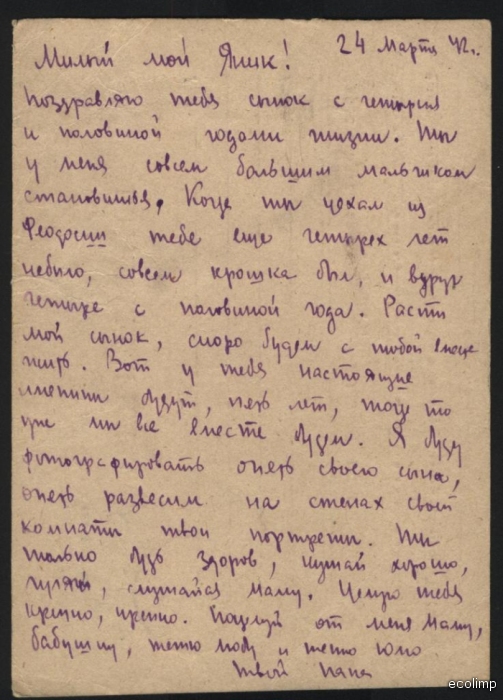 24 Марта 42г.
Милый мой Яшик!
Поздравляю тебя сынок с четырмя
и половиной годами жизни. Ты
у меня совсем большим мальчиком
становишься. Когда ты уехал из
Феодосии тебе еще четырех лет
небыло, совсем крошка был, и вдруг
четыре с половиной года. Расти
мой сынок, скоро будем с тобой вместе
жить. Вот у тебя настоящие
именины будут, пять лет, тогда то
уже мы все вместе будем. Я буду
фотографировать опять своего сына,
опять развесим на стенах своей
комнаты твои портреты. Ты
только будь здоров, кушай хорошо,
гуляй, слушайся маму. Целую тебя
крепко, крепко. Поцелуй от меня маму,
бабушку, тетю и тетю Юлю
Твой папа
ecolimp